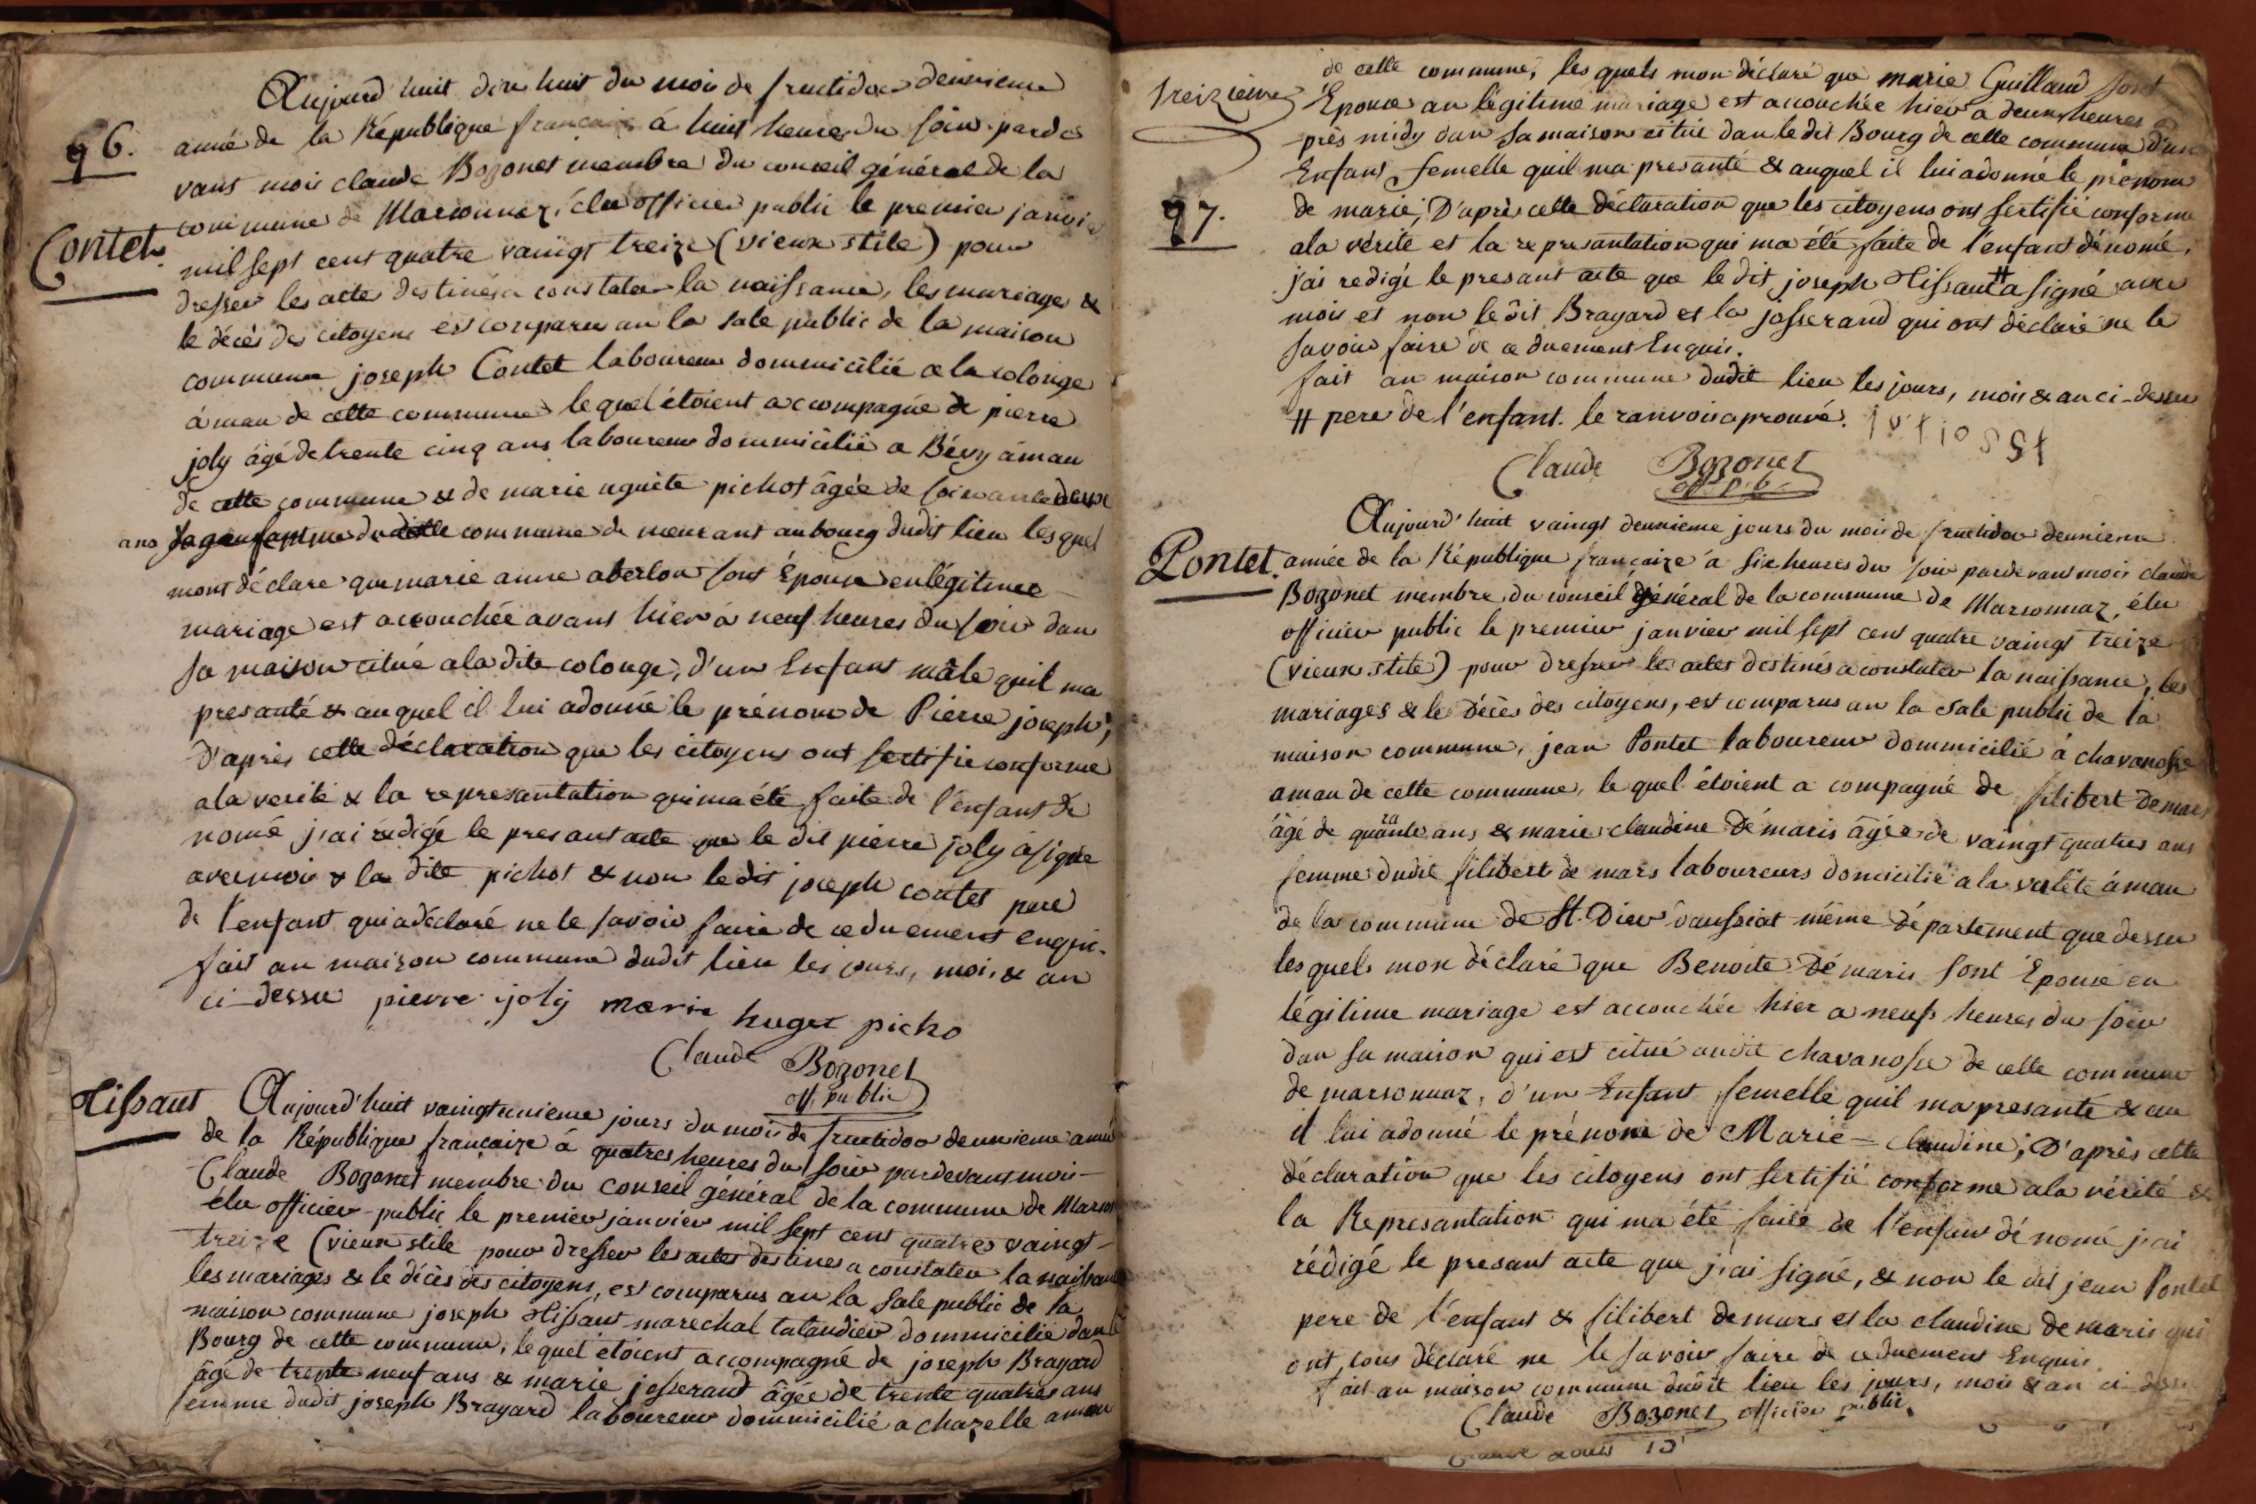 Aujourd'huit dix huit du mois de fructidor deuxieme
96.
année de la République française à huit heures du soir parde
vant mois claude Bozonet membre du conseil général de la
commune de Marsonnaz, élu officier public le premier janvie
Contet.
mil sept cent quatre vaingt treize (vieux stile) pour
dresser les actes destinés a constater la naissance, les mariages &
le décès des citoyens est comparu an la sale public de la maison
commune joseph Contet laboureur dommicilié a la colonge
âmau de cette commune lequel étoient accompagné de pierre
joly âgé de trente cinq ans laboureur dommicilié a Bévy âmau
de cette commune & de marie uguéte pichot âgée de soixante deux
ans commune demeurant au bourg dudit lieu lesquel
mont déclare que marie anne aberlon sont Épouse en légitime
mariage est accouchée avant hier à neuf heures du soir dan
sa maison citué a la dite colonge, d'un Enfant mâle quil ma
presanté & auquel il lui adonné le prénom de Pierre joseph;
D'après cette déclaration que les citoyens ont sertifié conforme
ala verité & la represantation qui ma été faite de l'enfant dé
nomé j'ai rédigé le presant acte que le dit pierre joly à signé
avec moi & la dite pichot & non le dit joseph contet pere
de l'enfant qui a déclaré ne le savoir faire de ce duement enqui.
fait an maison commune dudit lieu les jours, mois & an
ci-dessu pierre joly marie huget picho
Claude Bozonet
off. public
Tissaut Aujourd'huit vaingtunieme jours du mois de fructidor deuxieme anné
de la République françaize à quatres heures du soir pardevant mois
Claude Bozonet membre du conseil général de la commune de Marson
élu officier public le premier janvier mil sept cent quatres vaingt
treize (vieux stile pour dresser les actes destines a constater la naissance
les mariages & le décès des citoyens, est comparus an la sale public de la
maison commune joseph Tissaut marechal talandier dommicilié dan le
Bourg de cette commune, lequel étoient accompagné de joseph Brayard
âgé de trente neuf ans & marie josserant âgée de trente quatres ans
femme dudit joseph Brayard laboureur dommicilié a chazelle amau
de cette commune, les quels mon déclaré que marie Guillaud sont
treizieme
Epouse an légitime mariage est accouchée hier à deux heures
près midy dan sa maison citué dan le dit Bourg de cette commune d'un
Enfant femelle quil ma presanté & auquel il lui adonné le prénom
97.
de marie; D'après cette déclaration que les citoyens ont sertifié conforme
ala vérité et la represantation qui ma été faite de l'enfant dénomé,
j'ai redigé le presant acte que le dit joseph Tissaut # a signé avec
mois et non le dit Brayard et la josserand qui ont déclaré ne le
savoir faire de ce duement Enquis.
fait an maison commune dudit lieu les jours, mois & an ci-dessu
# pere de l'enfant. le ranvois aprouvé.
Claude Bozonet
off. p. b.
Aujourd'huit vaingt deuxieme jours du mois de fructidor deuxieme
Pontet.
année de la République françaize à six heures du soir pardevant mois claude
Bozonet membre du conseil général de la commune de Marsonnaz, élu
officier public le premier janvier mil sept cent quatre vaingt treize
(vieux stile) pour dresser les actes destinés a constater la naissance, les
mariages & le décès des citoyens, est comparus an la sale public de la
maison commune, jean Pontet laboureur dommicilié à chavanosse
amau de cette commune, le quel étoient a compagné de filibert demars
âgé de quarante ans & marie claudine Démaris âgée de vaingt quatres ans
femme dudit filibert de mars laboureurs domicilié a la verlête âmau
de la commune de St. Dier daussiat même département que dessu
lesquels mon déclaré que Benoite Démaris sont Epouse en
légitime mariage est accouchée hier a neufs heures du soir
dan sa maison qui est citué audit chavanosse de cette commune
de marsonnaz, d'un Enfant femelle quil ma presanté & au
il lui adonné le prénom de Marie-claudine; D'après cette
déclaration que les citoyens ont sertifié conforme ala vérité &
la Représantation qui ma été faite de l'enfant dénomé j'ai
rédigé le presant acte que j'ai signé, & non le dit jean Pontet
pere de l'enfant & filibert demars et la claudine demaris qui
ont tous déclaré ne le savoir faire de ce duement Enquis.
fait an maison commune dudit lieu les jours, mois & an ci-dessu
Claude Bozonet officier public.